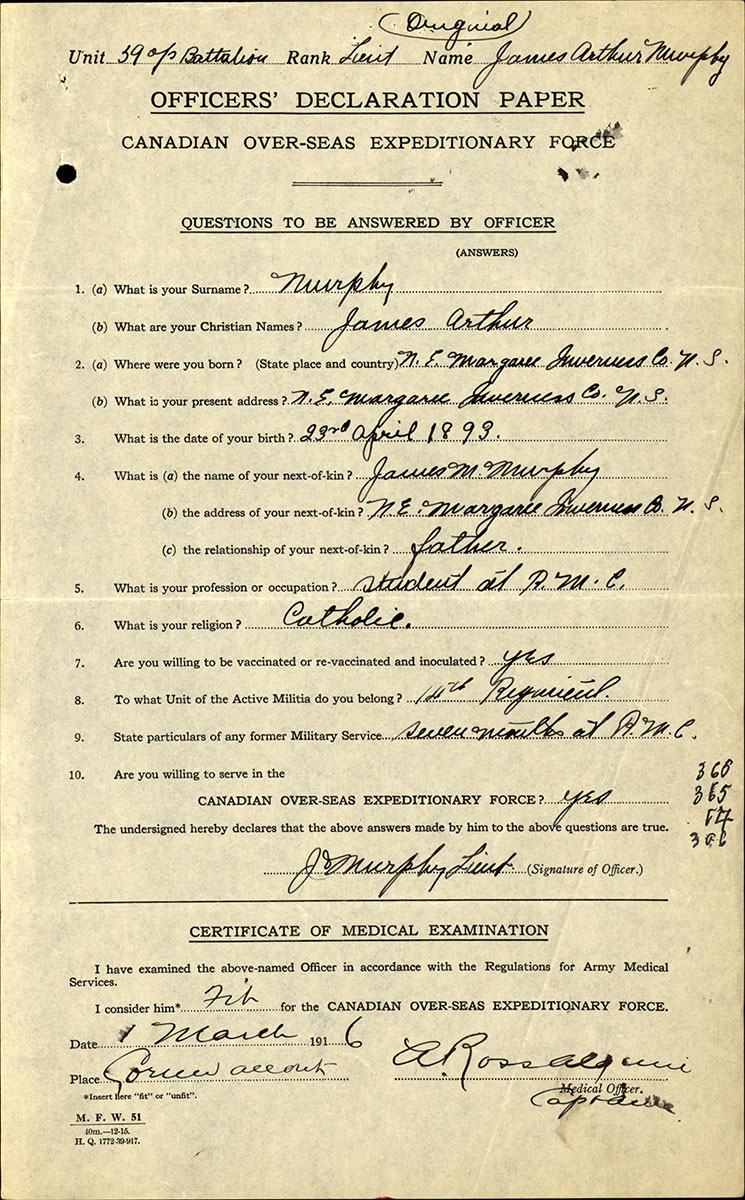 Original
Unit 59 o/s Battalion Rank Lieut Name James Arthur Murphy
OFFICERS' DECLARATION PAPER
CANADIAN OVER-SEAS EXPEDITIONARY FORCE
QUESTIONS TO BE ANSWERED BY OFFICER
(ANSWERS)
1. (a) What is your Surname? Murphy
(b) What are your Christian Names? James Arthur
2. (a) Where were you born? (State place and country) N. E. Margaree Inverness Co. N. S.
(b) What is your present address? N. E. Margaree Inverness Co. N. S.
3. What is the date of your birth? 23rd April 1893.
4. What is (a) the name of your next-of-kin? James M. Murphy
(b) the address of your next-of-kin? N. E. Margaree Inverness Co. N. S.
(c) the relationship of your next-of-kin? father.
5. What is your profession or occupation? Student at R. M. C.
6. What is your religion? Catholic.
7. Are you willing to be vaccinated or re-vaccinated and inoculated? yes
8. To what Unit of the Active Militia do you belong? 14th Regiment.
9. State particulars of any former Military Service seven months at R. M. C.
10. Are you willing to serve in the
CANADIAN OVER-SEAS EXPEDITIONARY FORCE? yes
368
365
The undersigned hereby declares that the above answers made by him to the above questions are true.
J Murphy Lieut. (Signature of Officer.)
CERTIFICATE OF MEDICAL EXAMINATION
I have examined the above-named Officer in accordance with the Regulations for Army Medical
Services.
I consider him* Fit for the CANADIAN OVER-SEAS EXPEDITIONARY FORCE.
Date 1 March 1916
Place
A. Ross
*Insert here "fit" or "unfit".
Medical Officer.
Captain
M. F. W. 51
40m.—12-15.
H. Q. 1772-39-917.